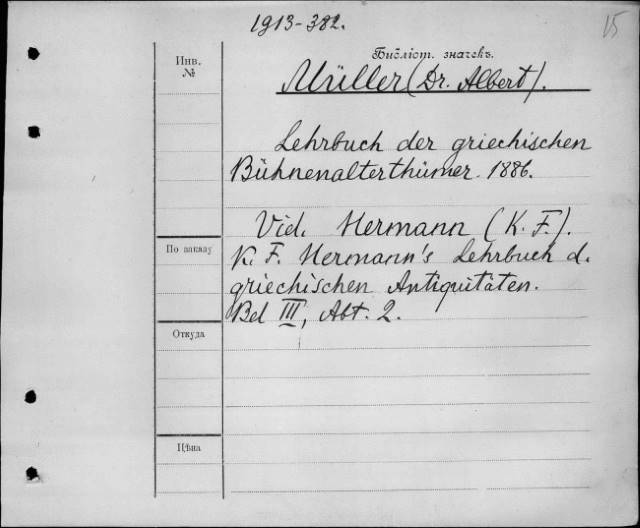 1913-382.
15
Инв.
№
Библіот. значекъ.
Müller (Dr. Albert).
Lehrbuch der griechischen
Bühnenalterthümer. 1886.
Vid. Hermann (K. F.).
По заказу
K. F. Hermann's Lehrbuch d.
griechischen Antiquitäten.
Bd III, Abt. 2.
Откуда
Цѣна